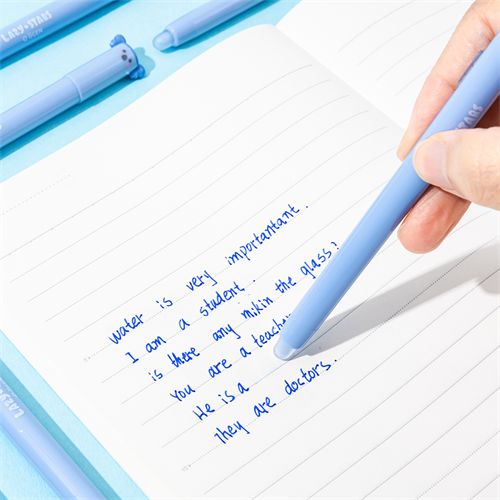 LAZY★STARS
LAZY★STARS
water is very importantant.
I am a student..
is there any milkin the glass?
You are a teacher
He is a
They are doctors..